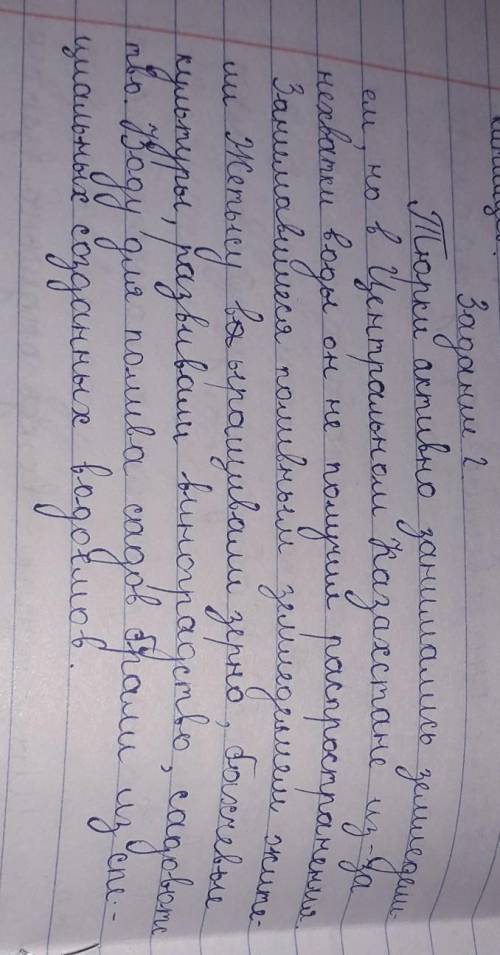 Задание 2
Тюрки активно занимались земледели-
ем, но в Центральном Казахстане из-за
нехватки воды он не получил распространения.
Занимавшиеся поливным земледелием жите-
ли Жетысу выращивали зерно, бахчевые
культуры, развивали виноградство, садоводс
тво. Воду для полива садов брали из спе-
циальных созданных водоёмов.